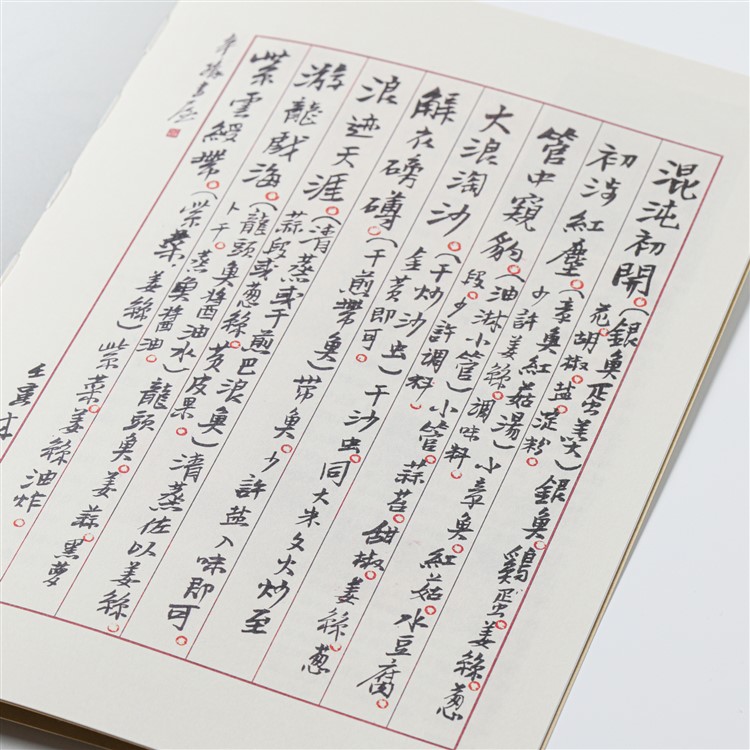 混沌初開（銀魚蛋羹）銀魚雞蛋姜絲葱
花胡椒鹽淀粉
初涉紅塵（章魚紅菇湯）小章魚紅菇水豆腐
少許姜絲調味料
管中窺豹（油淋小管）小管蒜苔甜椒姜絲葱
段少許調料
大浪淘沙（干炒沙虫）干沙虫同大米文火炒至
金黃即可
解衣磅礴（干煎帶魚）帶魚少許鹽入味即可
浪迹天涯（清蒸或干煎巴浪魚）清蒸佐以姜絲
蒜段或葱絲黃皮果
游龍戲海（龍頭魚醬油水）龍頭魚姜蒜黑蘿
卜干蒸魚醬油
紫雲縵帶（紫菜．姜絲）紫菜姜絲油炸